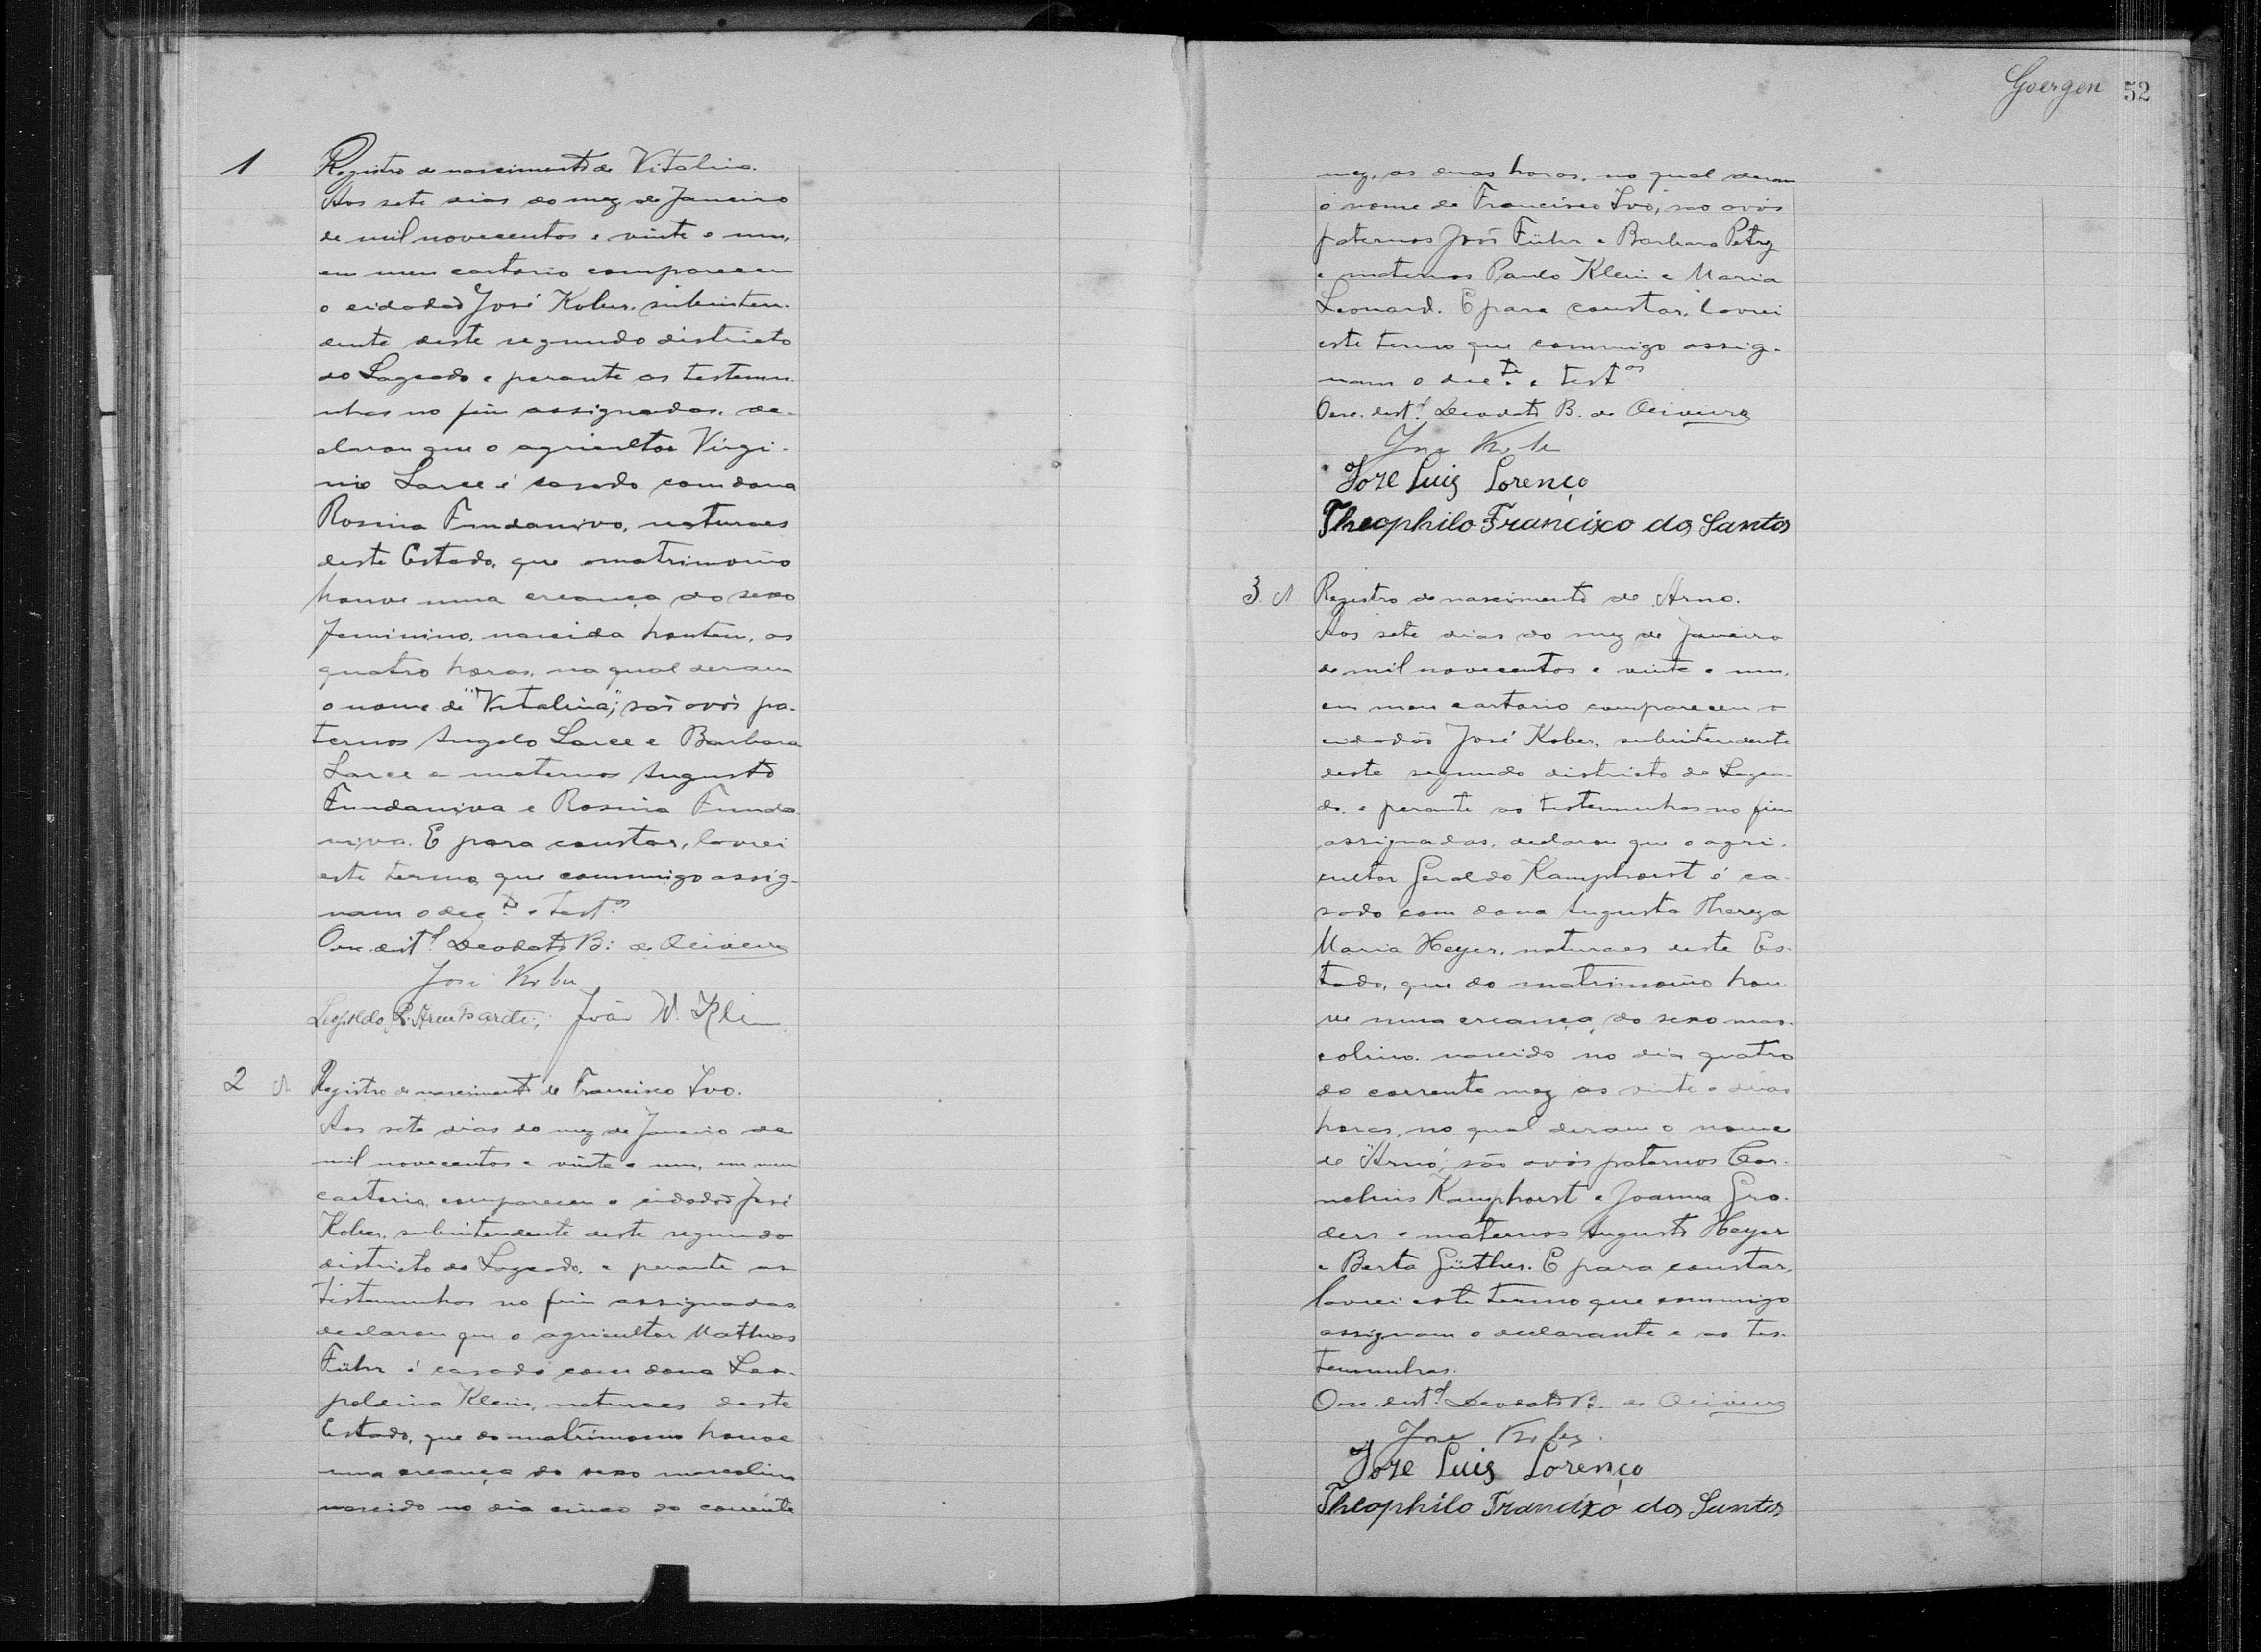 1
Registro de nascimento de Vitalina.
Aos sete dias do mez de Janeiro
de mil novecentos e vinte e um,
em meu cartorio compareceu
o cidadão José Kober, subinten-
dente deste segundo districto
do Lageado e perante as testemu-
nhas no fim assignadas, de-
clarou que o agricultor Virgi-
nio Larce é casado com dona
Rosina Fundaniva, naturaes
deste Estado, que matrimonio
houve uma creança do sexo
feminino, nascida hontem, as
quatro horas, na qual deram
o nome de "Vitalina"; são avós pa-
ternos Angelo Larce e Barbara
Larce e maternos Augusto
Fundaniva e Rosina Funda-
niva. E para constar, lavrei
este termo que commigo assig-
nam o dec.te e test.as
O esc. dist.l Deodato B. de Oliveira
José Kober
Leopoldo João W. Klein
2 N
Registro de nascimento de Francisco Ivo.
Aos sete dias do mez de Janeiro de
mil novecentos e vinte e um, em meu
cartorio, compareceu o cidadão José
Kober, subintendente deste segundo
districto do Lageado, e perante as
testemunhas no fim assignadas,
declarou que o agricultor Mathias
Führ é casado com dona Leo-
poldina Klein, naturaes deste
Estado, que do matrimonio houve
uma creança do sexo masculino
nascido no dia cinco do corrente
Goergen 52
mez, as duas horas, no qual deram
o nome de Francisco Ivo, são avós
paternos José Führ e Barbara Petry
e maternos Paulo Klein e Maria
Leonard. E para constar, lavrei
este termo que commigo assig-
nam o dec.te e test.as
O esc. dist.l Deodato B. de Oliveira
José Kober
Joze Luis Lorenço
Theophilo Francisco dos Santos
3. N
Registro de nascimento de Arno.
Aos sete dias do mez de Janeiro
de mil novecentos e vinte e um,
em meu cartorio compareceu o
cidadão José Kober, subintendente
deste segundo districto do Lagea-
do, e perante as testemunhas no fim
assignadas, declarou que o agri-
cultor Geraldo Kamphorst é ca-
sado com dona Augusta Thereza
Maria Heyer, naturaes deste Es-
tado, que do matrimonio hou-
ve uma creança, do sexo mas-
colino, nascido no dia quatro
do corrente mez as vinte e duas
horas, no qual deram o nome
de "Arno"; são avós paternos Cor-
nelius Kamphorst e Joanna Gro-
ders e maternos Augusto Heyer
e Berta Güther. E para constar,
lavrei este termo que commigo
assignam o declarante e as tes-
temunhas.
O esc. dist.l Deodato B. de Oliveira
José Kober
Joze Luis Lorenço
Theophilo Francisco dos Santos